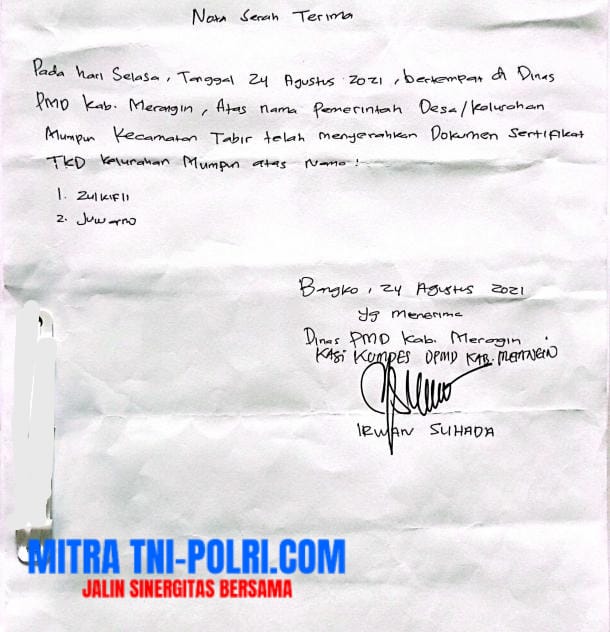 Nota Serah Terima
Pada hari Selasa, Tanggal 24 Agustus 2021, bertempat di Dinas
PMD Kab. Merangin, Atas nama Pemerintah Desa/Kelurahan
Mumpun Kecamatan Tabir telah menyerahkan Dokumen Sertifikat
TKD Kelurahan Mumpun atas Nama :
1. Zulkifli
2. Juwarno
Bangko, 24 Agustus 2021
yg menerima
Dinas PMD Kab. Merangin
KASI KUMPES DPMD KAB. MERANGIN
IRWAN SUHADA
MITRA TNI-POLRI.COM
JALIN SINERGITAS BERSAMA